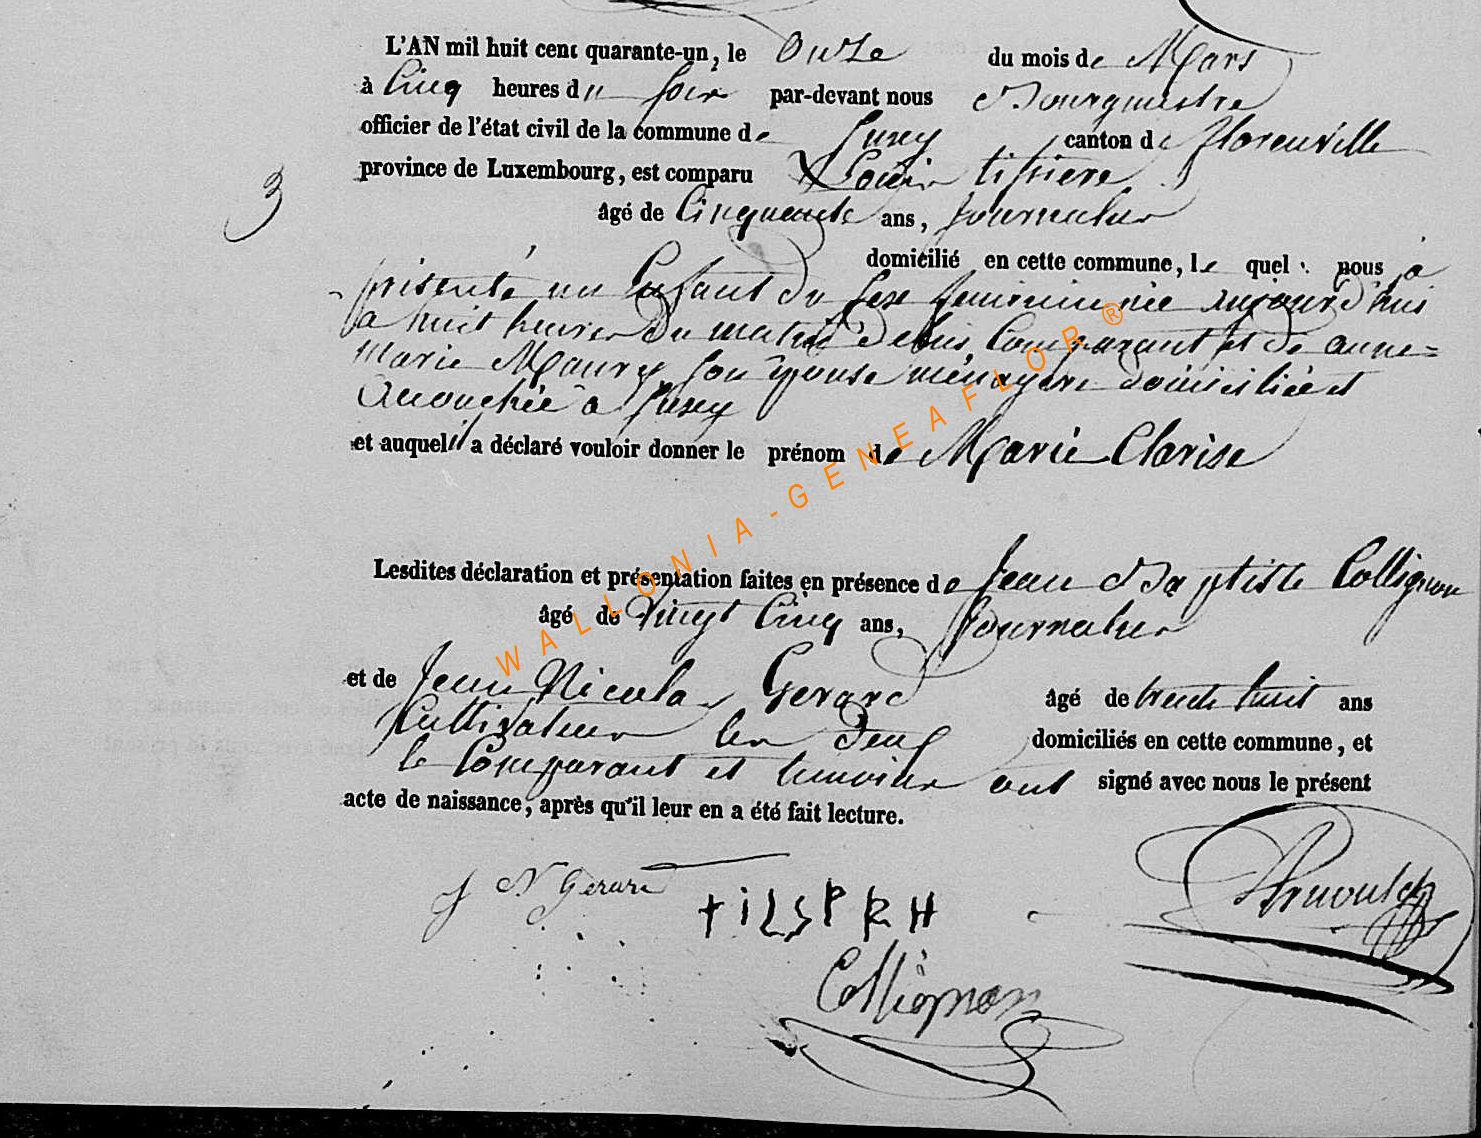 L'AN mil huit cent quarante-un, le onze du mois de Mars
à Cinq heures du soir par-devant nous Bourgmestre
officier de l'état civil de la commune de Jusey canton de florenville
province de Luxembourg, est comparu Louis
3
âgé de Cinquante ans, Journalier
domicilié en cette commune, le quel nous à
présenté un Enfant du sexe feminin née aujourd'hui
à huit heures du matin de lui Comparant et de anne=
Marie Maury son épouse ménagère domiciliée et
Accouchée à Jusey
et auquel il a déclaré vouloir donner le prénom de Marie Clarise
Lesdites déclaration et présentation faites en présence de Jean Baptiste Collignon
âgé de vingt Cinq ans, Journalier
et de Jean Nicolas Gerard âgé de trente huit ans
Cultivateur les deux domiciliés en cette commune, et
le Comparant et temoins ont signé avec nous le présent
acte de naissance, après qu'il leur en a été fait lecture.
J N Gerard
Collignon
WALLONIA-GENEAFLOR®